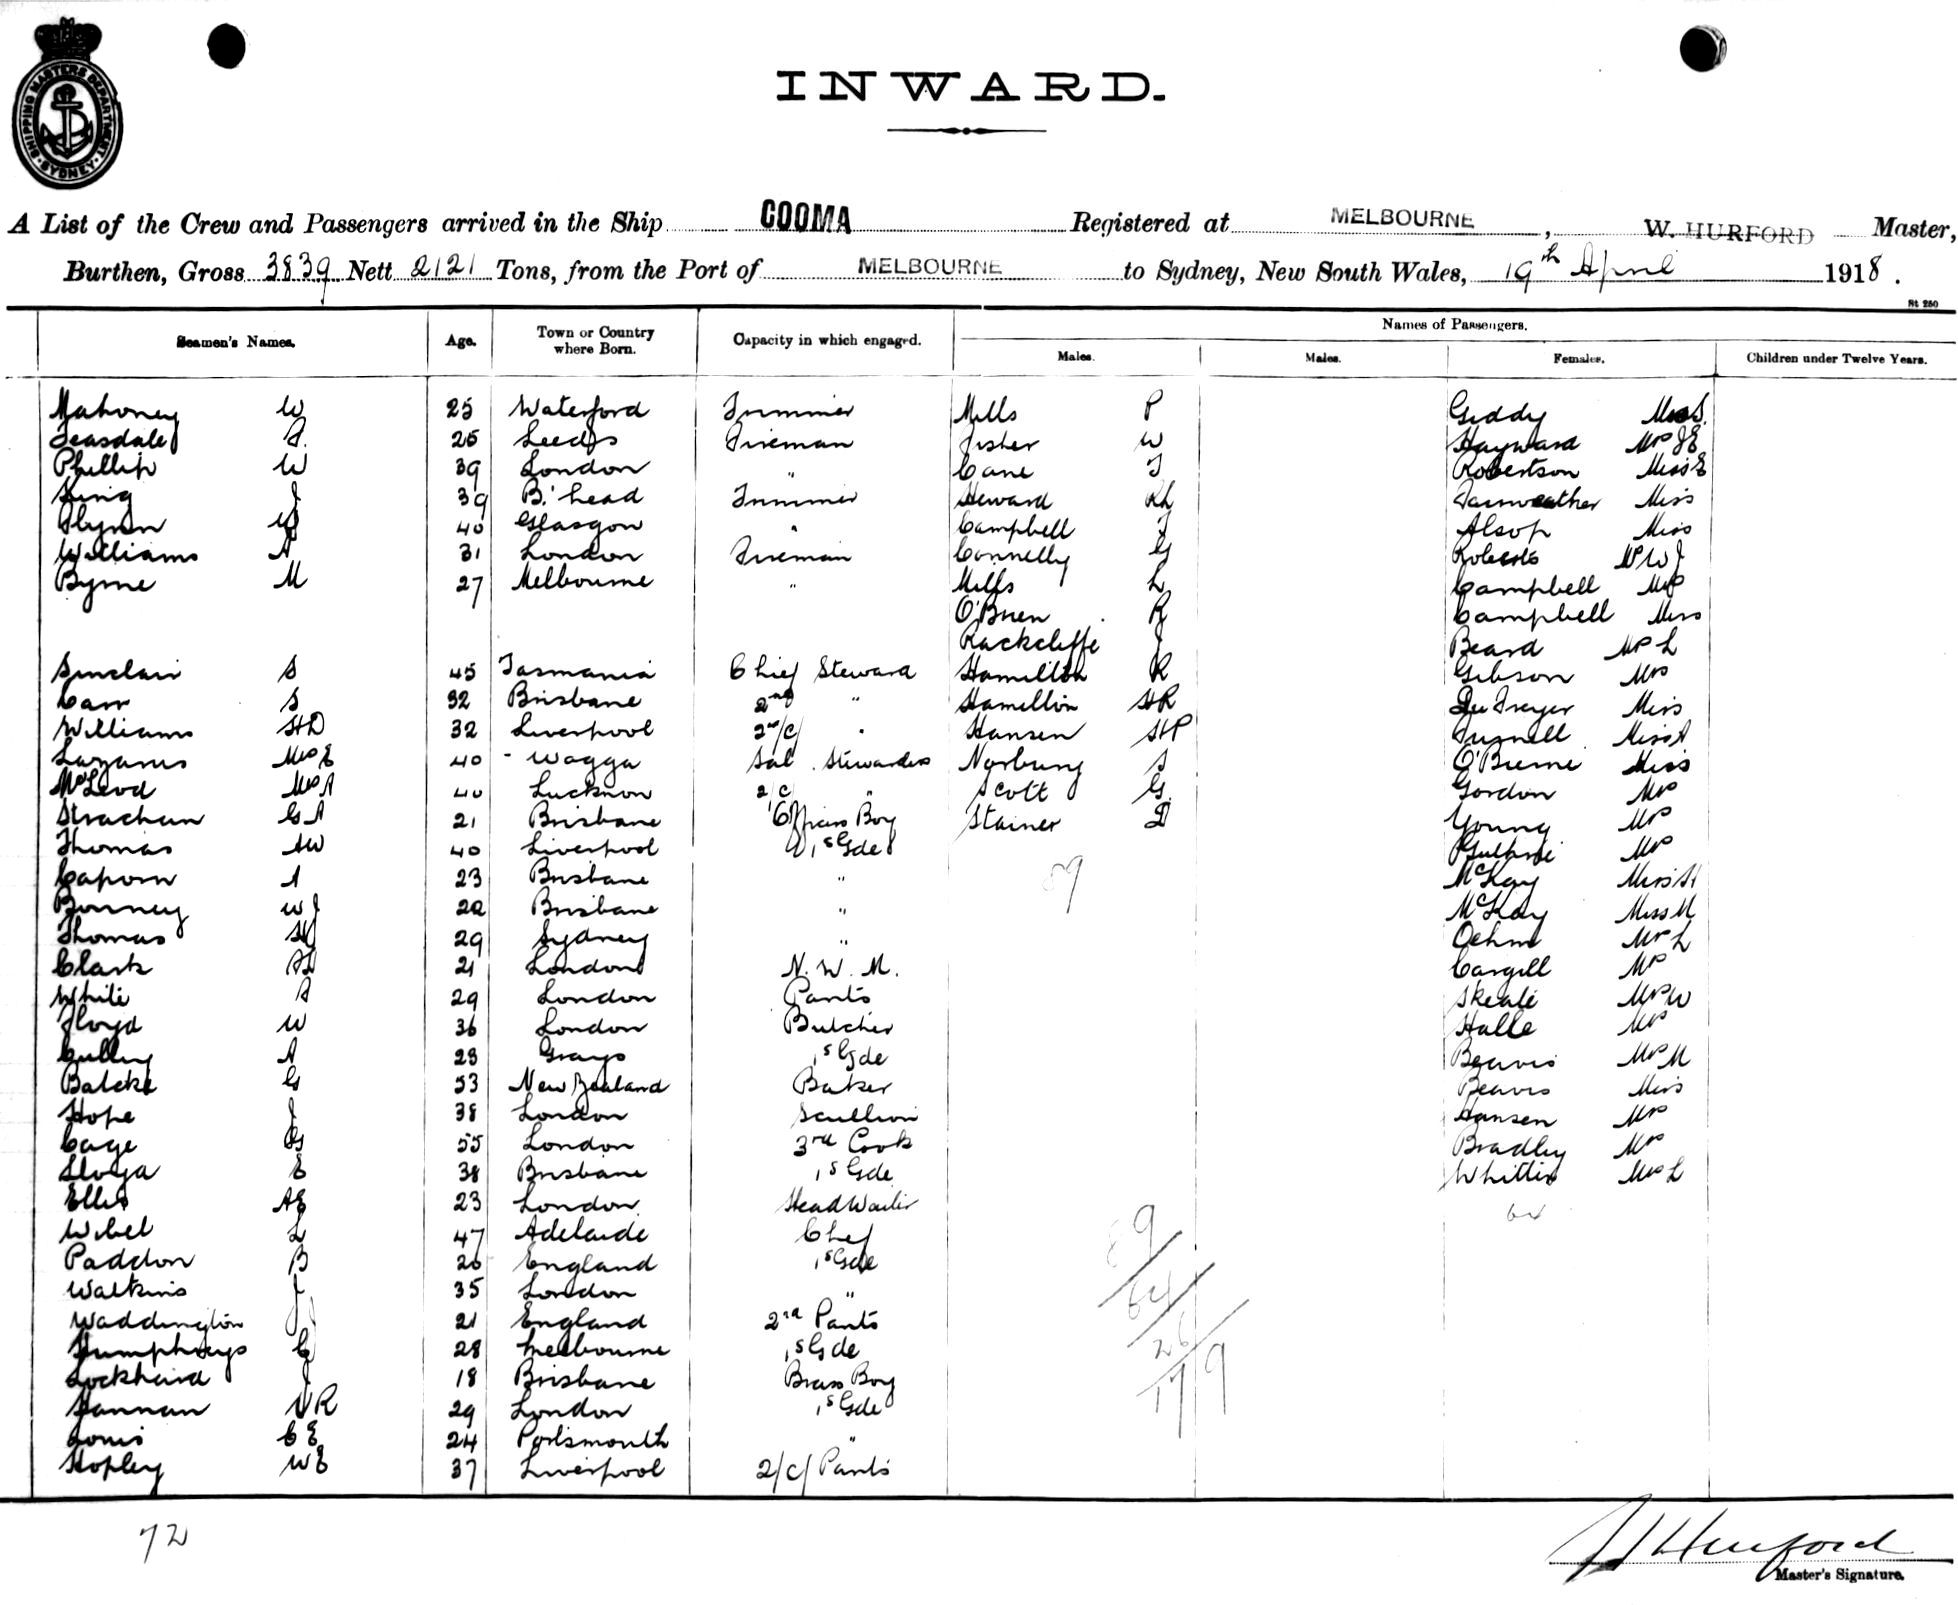 SHIPPING MASTERS DEPARTMENT
SYDNEY
INWARD.
A List of the Crew and Passengers arrived in the Ship COOMA Registered at MELBOURNE, W. HURFORD Master,
Burthen, Gross 3839 Nett 2121 Tons, from the Port of MELBOURNE to Sydney, New South Wales, 19th April 1918.
St 250
Names of Passengers.
Seamen's Names. Age. Town or Country where Born. Capacity in which engaged. Males. Males. Females. Children under Twelve Years.
Mahoney W 25 Waterford Trimmer Mills P Giddy Miss
Teasdale 25 Leeds Fireman Fisher W Hayward Mrs JE
Phillip W 39 London " Cane J Robertson Miss E
King J 39 B.'head Trimmer Steward Fairweather Miss
Flynn 40 Glasgow " Campbell J Alsop Miss
Williams A 31 London Fireman Connelly G Roberts Mrs W J
Byrne M 27 Melbourne " Mills L Campbell Mrs
O'Brien R Campbell Miss
Rackcliffe J Beard Mrs L
Sinclair S 45 Tasmania Chief Steward Hamilton R Gibson Mrs
Carr S 32 Brisbane 2nd " Hamilton HR De Frayer Miss
Williams HD 32 Liverpool 2nd/C/ " Hansen HP Miss A
Lazarus Mrs E 40 - Wagga Sal. Stewardess Norbury S O'Beirne Miss
McLeod Mrs A 40 Lucknow 2/C/ " Scott G. Gordon Mrs
Strachan G A 21 Brisbane Officers Boy Stainer D Young Mrs
Thomas AW 40 Liverpool 1s Gde Guthrie Mrs
Caporn A 23 Brisbane " 89 McKay Miss H
Bonney WJ 22 Brisbane " McKay Miss M
Thomas HJ 29 Sydney " Oehm Mrs L
Clark 21 London N. W. M. Cargill Mrs
White A 29 London Pants Skeate Mrs W
Floyd W 36 London Butcher Halle Mrs
Culley A 28 Grays 1s Gde Beavis Mrs M
Batcke G 53 New Zealand Baker Beavis Miss
Hope J 38 London Scullion Hansen Mrs
Cage G 55 London 3rd Cook Bradley Mrs
E 38 Brisbane 1s Gde Whittis Mrs L
Ellis AE 23 London Head Waiter
Wibel L 47 Adelaide Chef 89 64
Paddon B 20 England 1s Gde
Watkins J 35 London " 64
Waddington J 21 England 2nd Pants
Humphreys G 28 Melbourne 1s Gde 26
Lockhard J 18 Brisbane Brass Boy 179
Hannan VR 29 London 1s Gde
C E 24 Portsmouth "
Hopley WE 37 Liverpool 2/C/ Pants
72
Hurford
Master's Signature.